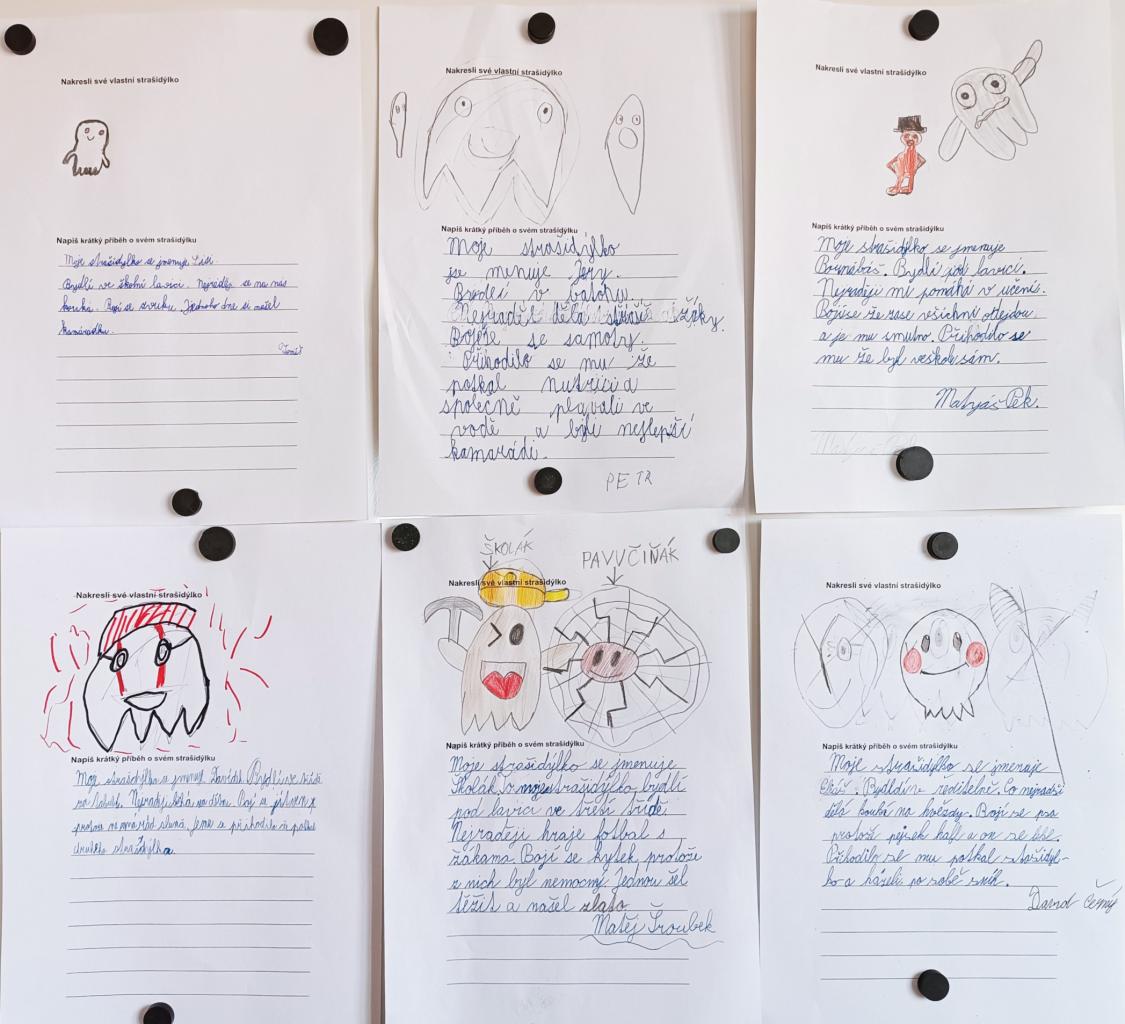 Nakresli své vlastní strašidýlko
Napiš krátký příběh o svém strašidýlku
Moje strašidýlko se jmenuje
Bydlí ve školní lavici. Nejraději se na nás
kouká. Bojí se zvuku. Jednoho dne si našel
kamarádku.
Tomáš
Nakresli své vlastní strašidýlko
Napiš krátký příběh o svém strašidýlku
Moje strašidýlko
se menuje Jery.
Bydlí v batohu.
Nejraději dělá žáky.
se samoty.
Přihodilo se mu že
potkal nutrici a
společně plavali ve
vodě a byli nejlepší
kamarádi.
PETR
Nakresli své vlastní strašidýlko
Napiš krátký příběh o svém strašidýlku
Moje strašidýlko se jmenuje
Barnabáš. Bydlí pod lavicí.
Nejraději mi pomáhá v učení.
Bojise že zase všichni odejdou
a je mu smutno. Přihodilo se
mu že byl veškole sám.
Matyáš Pek.
Nakresli své vlastní strašidýlko
Napiš krátký příběh o svém strašidýlku
Moje strašidýlko se jmenuje Bydlí ve
za tabulí. Bojí se
protože
druhého strašidýlka.
ŠKOLÁK
PAVUČIŇÁK
Nakresli své vlastní strašidýlko
Napiš krátký příběh o svém strašidýlku
Moje strašidýlko se jmenuje
Školák to moje strašidýlko bydlí
pod lavicí ve třetí třídě.
Nejraději hraje fotbal s
žákama. Bojí se kytek protože
z nich byl nemocný. Jednou šel
těžit a našel zlato
Matěj Šroubek
Nakresli své vlastní strašidýlko
Napiš krátký příběh o svém strašidýlku
Moje strašidýlko se jmenuje
Eliáš. Bydlí v ředitelně. Co nejradši
dělá kouká na hvězdy. Bojí se psa
protože pejsek kafe a on se lekne.
Přihodilo se mu potkal strašidýl-
ko a házeli po sobě sníh.
David Černý